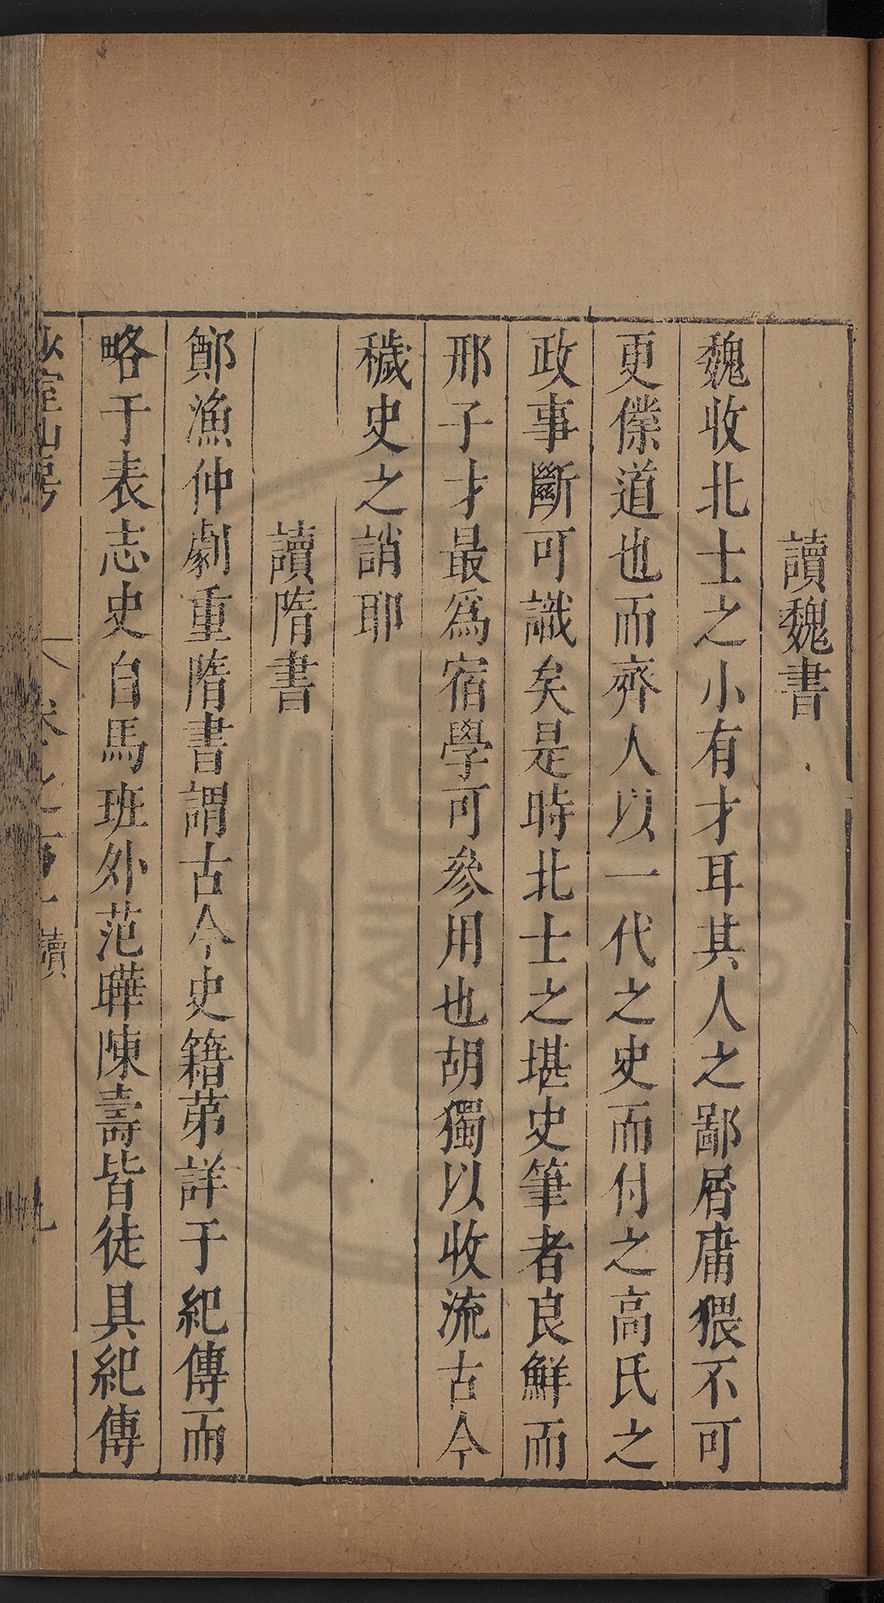 讀魏書
魏收北士之小有才耳其人之鄙屑庸猥不可
更僕道也而齊人以一代之史而付之高氏之
政事斷可識矣是時北士之堪史筆者良鮮而
邢子才最爲宿學可參用也胡獨以收流古今
穢史之誚耶
讀隋書
鄭漁仲劇重隋書謂古今史籍苐詳于紀傳而
略于表志史自馬班外范曄陳壽皆徒具紀傳
室山房 卷之 讀 九